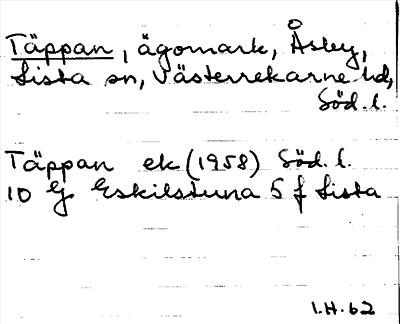 Täppan, ägomark, Åsby,
Lista sn, Västerrekarne hd,
Söd. l.
Täppan ek (1958) Söd. l.
10 G Eskilstuna 5 f Lista
I.H. 62